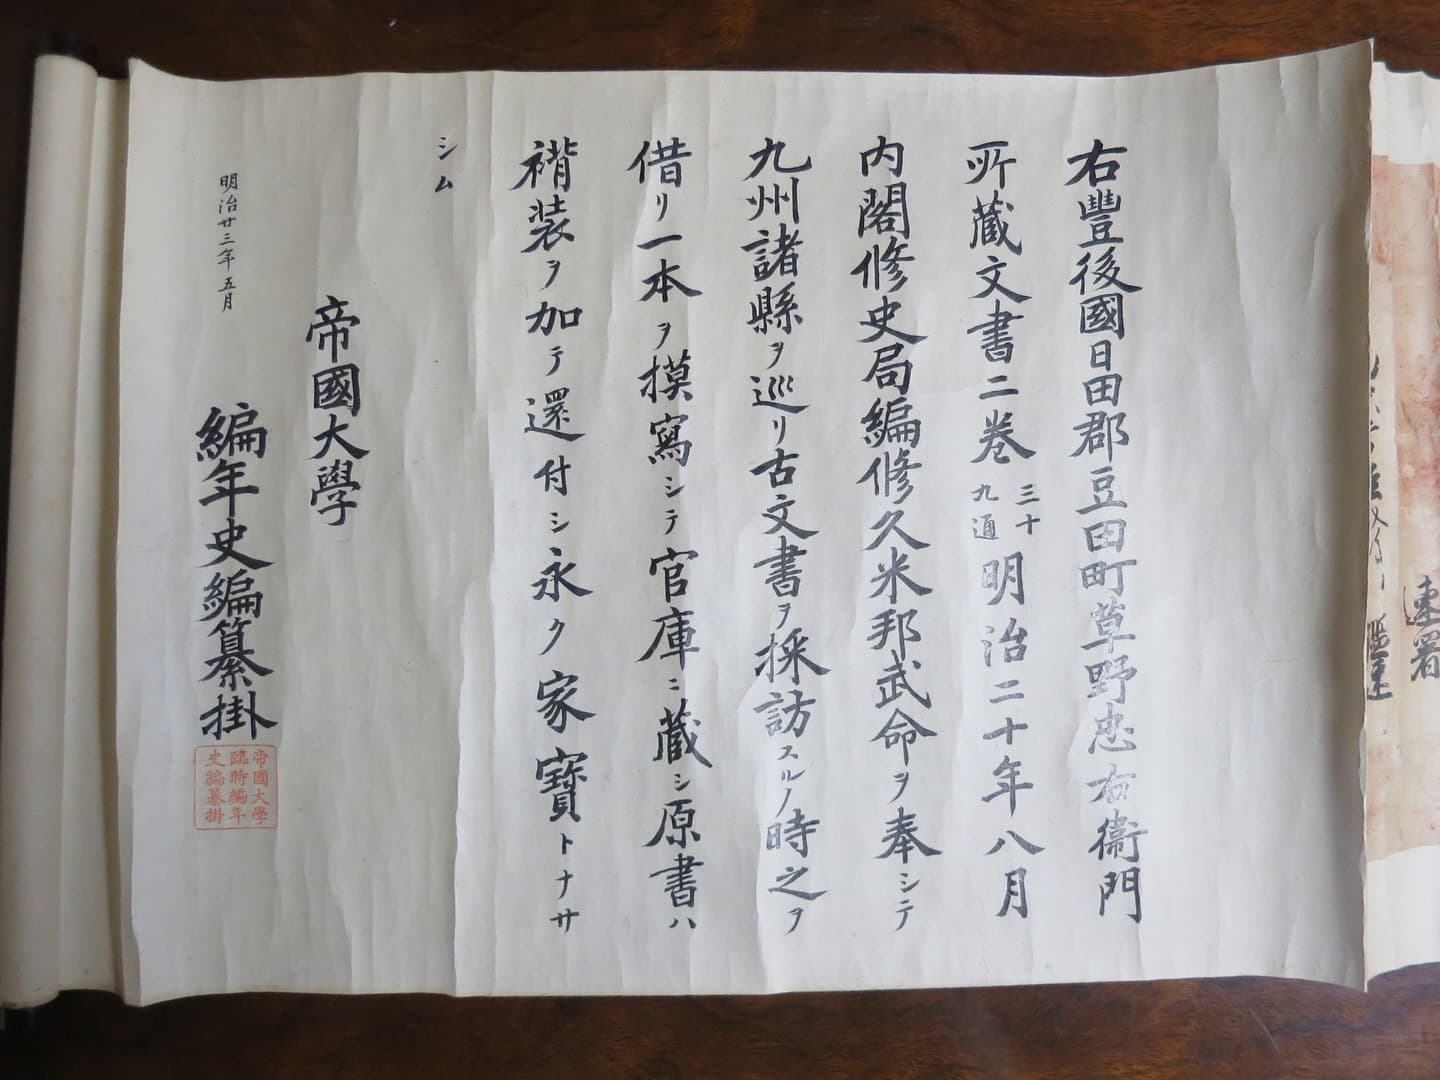 連署
鑑連
右豐後國日田郡豆田町草野忠右衞門
所藏文書二巻三十九通明治二十年八月
内閣修史局編修久米邦武命ヲ奉シテ
九州諸縣ヲ巡リ古文書ヲ採訪スルノ時之ヲ
借リ一本ヲ摸寫シテ官庫ニ藏シ原書ハ
褙装ヲ加テ還付シ永ク家寶トナサ
シム
帝國大學
編年史編纂掛
明治廿三年五月
帝國大學
臨時編年
史編纂掛